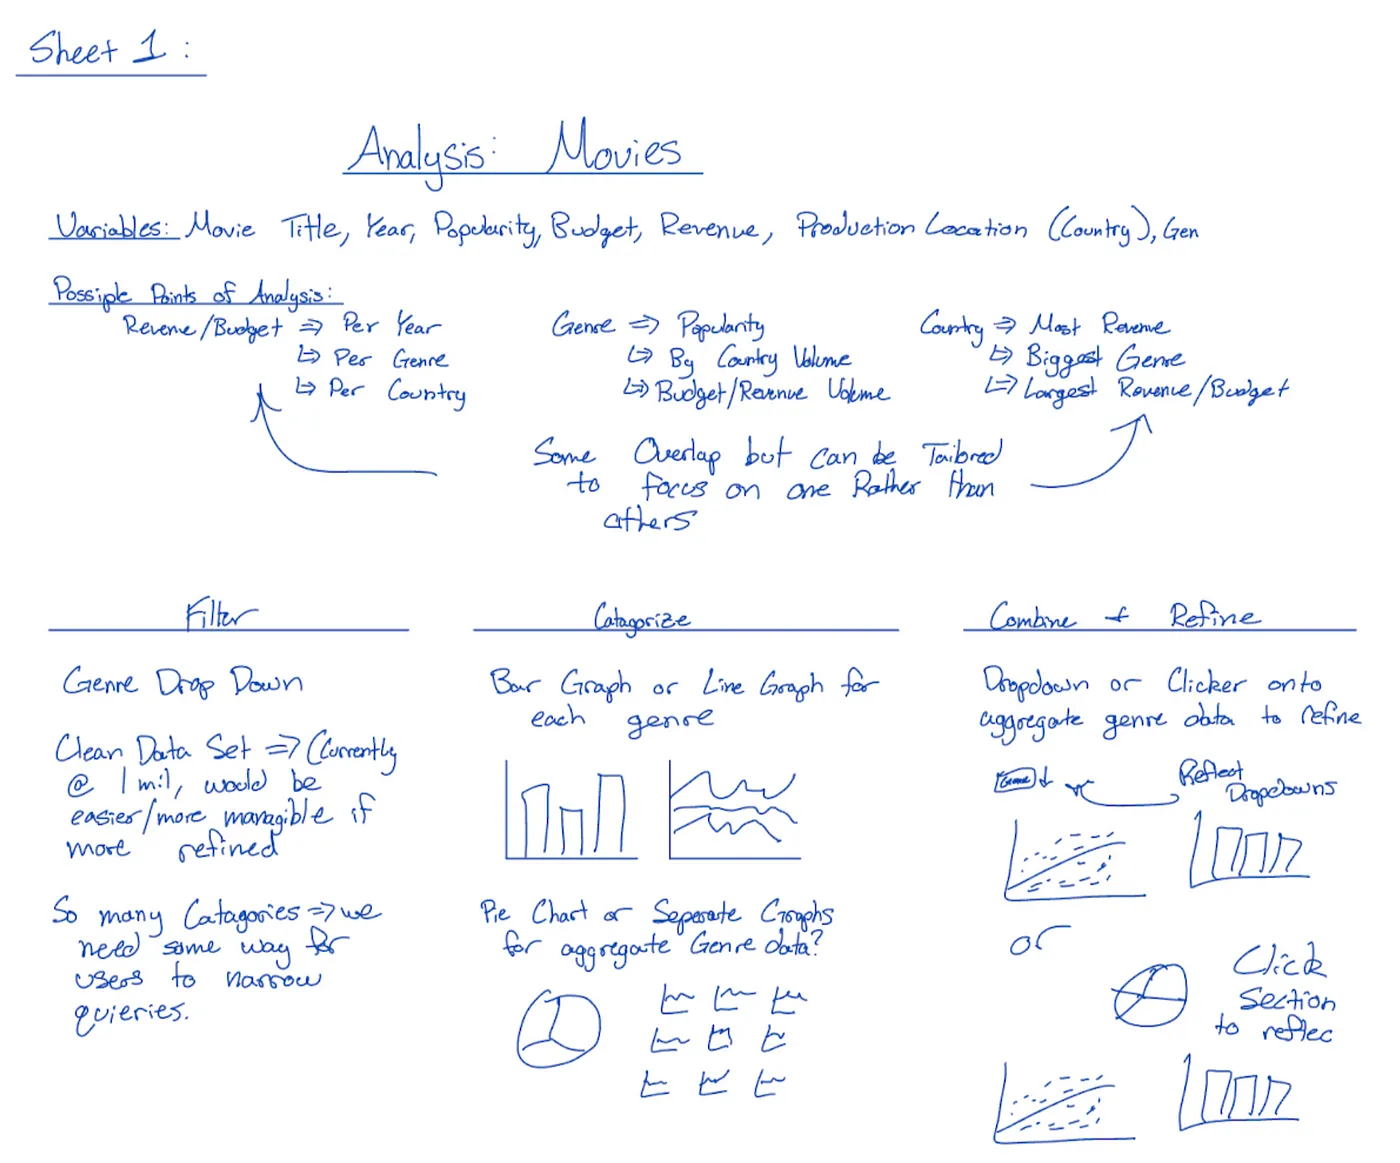 Sheet 1 :
Analysis: Movies
Variables: Movie Title, Year, Popularity, Budget, Revenue, Production Location (Country), Gen
Possiple Points of Analysis:
Revenue/Budget => Per Year
↳ Per Genre
↳ Per Country
Genre => Popularity
↳ By Country Volume
↳ Budget/Revenue Volume
Country => Most Revenue
↳ Biggest Genre
↳ Largest Revenue/Budget
Some Overlap but can be Tailored
to focus on one Rather than
others
Filter
Genre Drop Down
Clean Data Set => (Currently
@ 1 mil, would be
easier/more managible if
more refined
So many Catagories => we
need some way for
users to narrow
quieries.
Catagorize
Bar Graph or Line Graph for
each genre
Pie Chart or Seperate Graphs
for aggregate Genre data?
Combine + Refine
Dropdown or Clicker onto
aggregate genre data to refine
Genre
Reflect
Dropdowns
or
Click
Section
to reflec